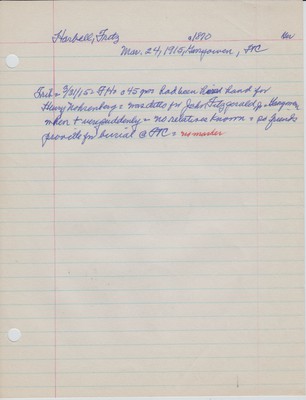 Harbell, Fritz a1870
Mar. 24, 1915, Garryowen, PTC
Trib = 3/31/15 = F.H. a 45 yrs had been hired hand for
Henry Nohrenberg = was ditto for John Fitzgerald, Jr.
when + very suddenly = no relatives known = so friends
provide for burial @ PTC = no marker